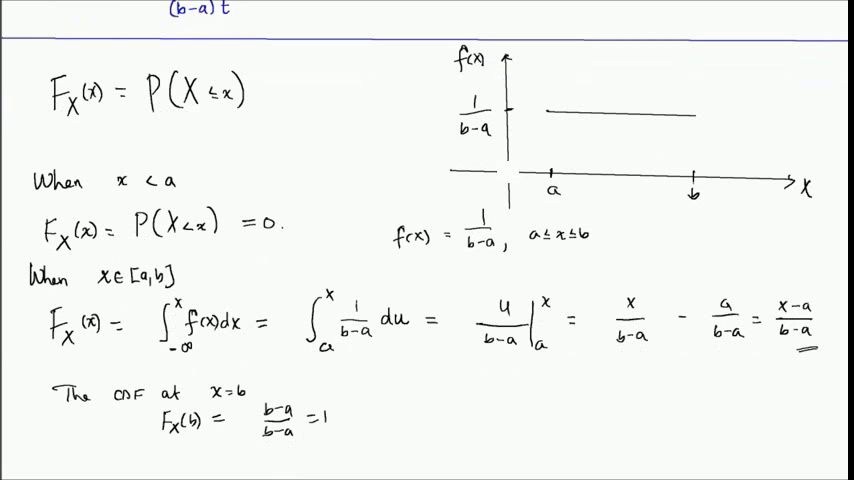 (b-a) t
F_X(x) = P(X ≤ x)
f(x)
1/(b-a)
a b x
When x < a
F_X(x) = P(X<x) = 0.
f(x) = 1/(b-a), a ≤ x ≤ b
When x ∈ [a,b]
F_X(x) = ∫_{-∞}^{x} f(x)dx = ∫_{a}^{x} 1/(b-a) du = u/(b-a) |_{a}^{x} = x/(b-a) - a/(b-a) = (x-a)/(b-a)
The CDF at x=b
F_X(b) = (b-a)/(b-a) = 1